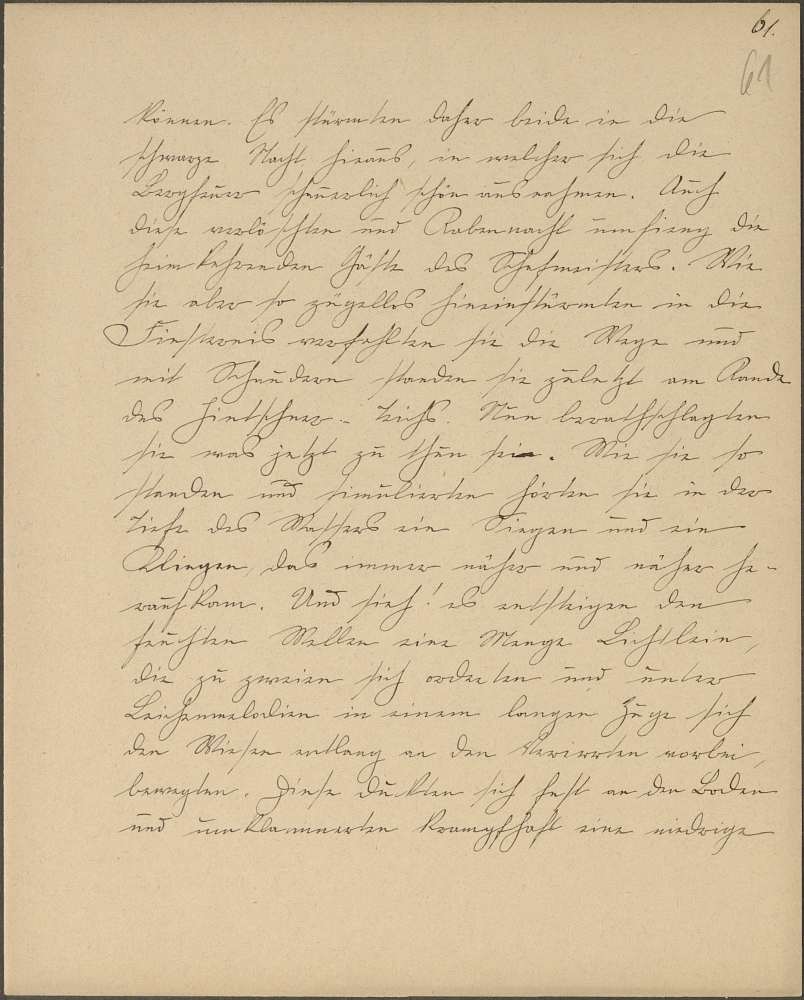 61.
61
können. Es stürmten daher beide in die
schwarze Nacht hinaus, in welcher sich die
Bergfeuer schauerlich schön ausnahmen. Auch
diese verlöschten und Rabennacht umfieng die
heimkehrenden Gäste des Schafmeisters. Wie
sie aber so zügellos hineinstürmten in die
Finsternis verfehlten sie die Wege und
mit Schaudern standen sie zuletzt am Rande
des - Teichs. Nun berathschlagten
sie was jetzt zu thun sei. Wie sie so
standen und simulierten hörten sie in der
Tiefe des Wassers ein Singen und ein
Klingen, das immer näher und näher he-
raufkam. Und sieh! es entsteigen den
feuchten Wellen eine Menge Lichtlein,
die zu zweien sich ordneten und unter
Leichenmelodien in einem langen Zuge sich
den Wiesen entlang an den Verirrten vorbei,
bewegten. Diese duckten sich fest an den Boden
und umklammerten krampfhaft eine niedrige